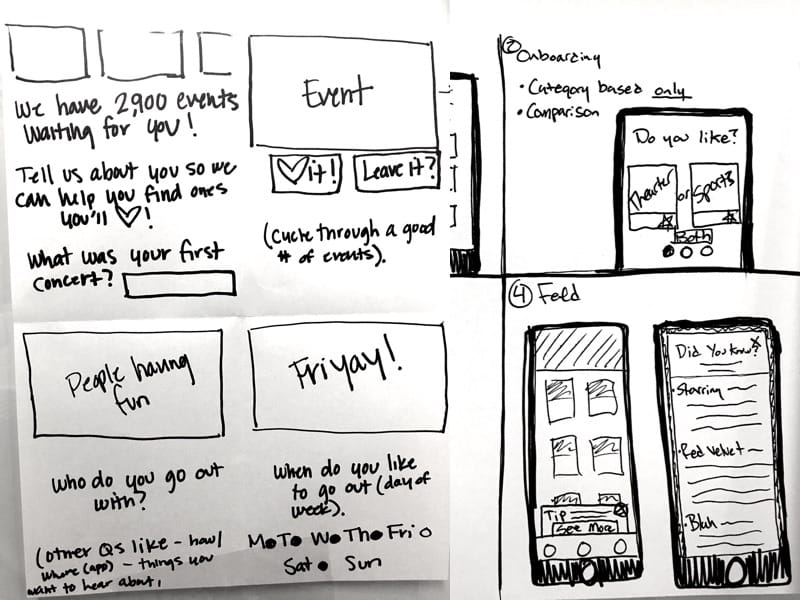 We have 2,900 events
waiting for you!
Tell us about you so we
can help you find ones
you'll ♡!
What was your first
concert?
Event
♡it!
Leave it?
(cycle through a good
# of events).
People having
fun
Who do you go out
with?
(other Qs like - how/
where (app) - things you
want to hear about,
Friyay!
When do you like
to go out (day of
week).
Mo To Wo Tho Fri o
Sat • Sun
② Onboarding
• Category based only
• Comparison
Do you like?
Theater or Sports
Both
④ Feld
Tip
See More
Did You Know?
• Starring
• Red Velvet
• Blah